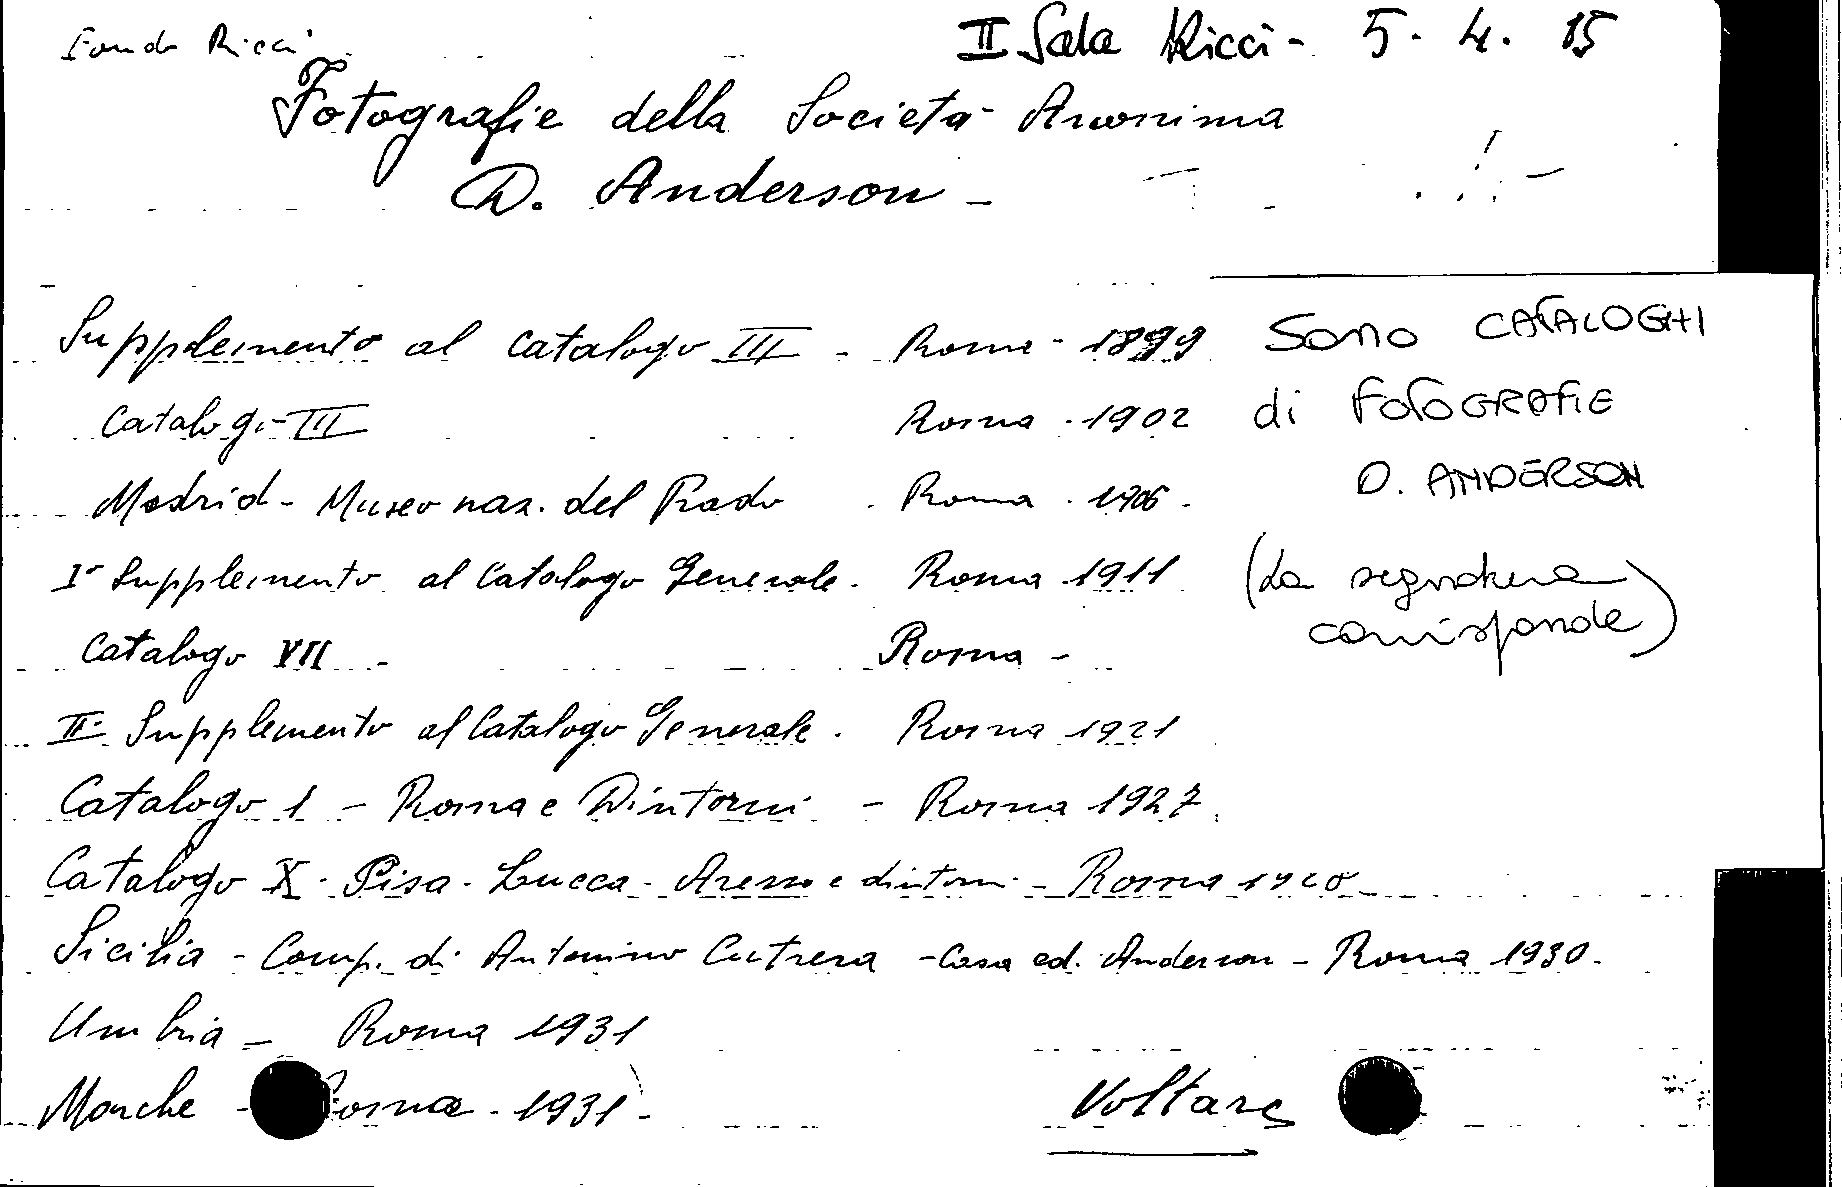 Fondo Ricci
II Sala Ricci - 5. 4. 15
Fotografie della Società Anonima
D. Anderson -
Supplemento al Catalogo III - Roma - 1899
Catalogo III Roma - 1902
Madrid - Museo naz. del Prado - Roma - 1906 -
I° Supplemento al Catalogo Generale. Roma 1911
Catalogo VII Roma -
II° Supplemento al Catalogo Generale. Roma 1921
Catalogo 1 - Roma e Dintorni - Roma 1927
Catalogo X - Pisa - Lucca - Arezzo e dintorni - Roma
Sicilia - Comp. di Antonino Cutrera - Casa ed. Anderson - Roma 1930.
Umbria - Roma 1931
Marche - Roma - 1931 -
Voltare
Sono CATALOGHI
di FOTOGRAFIE
D. ANDERSON
(La segnatura
corrisponde)